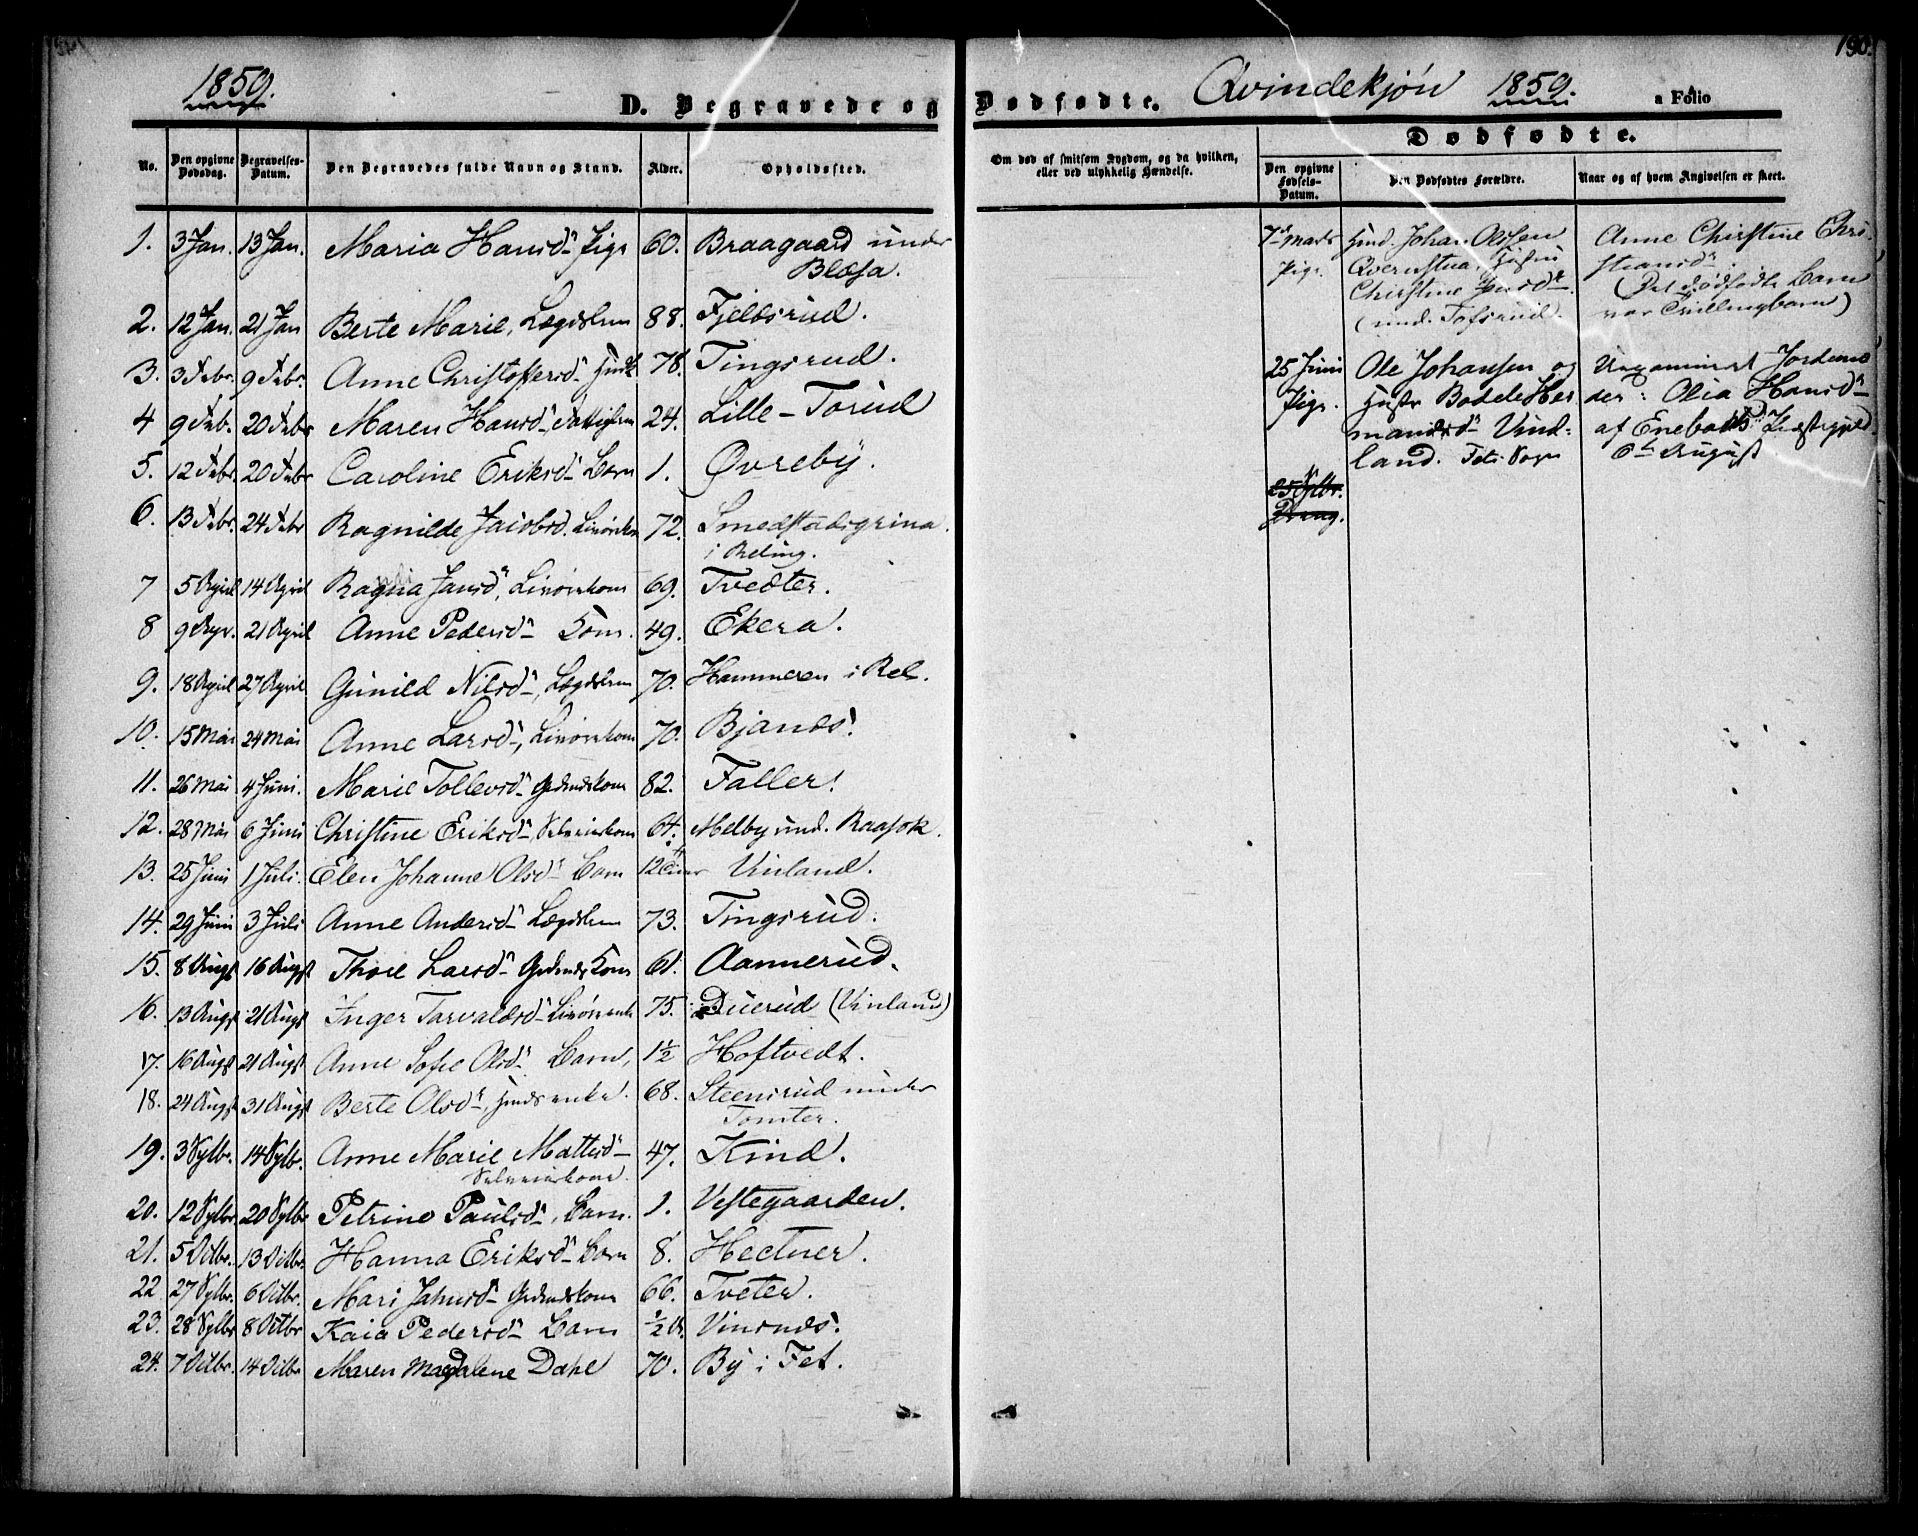 1859.
D. Begravede og
No.
Den opgivne Dødsdag.
Begravelses-Datum.
Den Begravedes fulde Navn og Stand.
Alder.
Opholdssted.
1. 3 Jan. 13 Jan. Maria Hansd. Pige 60. Braagaard under
Blæsa.
2. 12 Jan. 21 Jan Berte Marie, Lægdslem 88. Fjeldsrud.
3. 3 Febr. 9 Febr. Anne Christoffersd. 78. Tingsrud.
4 9 Feb. 20 Febr Maren Hansd. Fattiglem 24. Lille-Torud
5. 12 Febr 20 Febr Caroline Eriksd. Barn 1. Øvreby.
6. 13 Febr. 24 Febr Ragnilde Jacobsd. 72. Smedstadsgrina.
i Reling.
7 5 April 14 April Jansd. 69. Tvedter.
8 9 Apr. 21 April Anne Pedersd. Kone. 49. Ekera.
9. 18 April 27 April Gunild Nilsd., Lægdslem 70. Hammeren i Rel.
10. 15 Mai 24 Mai Anne Larsd., 70. Bjanæs.
11. 26 Mai 4 Juni. Marie Tollevsd. 82. Faller.
12. 28 Mai 6 Juni Christine Eriksd. 64. Melby und. Raasok.
13. 25 Juni 1 Juli. Elen Johanne Olsd. Barn 12 Vinland.
14. 29 Juni 3 Juli Anne Andersd. Lægdslem 73. Tingsrud.
15. 8 Augst 16 Augst Thore Larsd. 61. Aannerud.
16. 13 Augst 21 Augst Inger Torvaldsd. 75. Duerud (Vinland)
17. 16 Augst 21 Augst Anne Sofie Olsd. Barn, 1½ Hoftvedt.
18. 24 Augst 31 Augst Berte Olsd., enke. 68. Steensrud under
Tomter.
19. 3 Sptbr. 14 Sptbr. Anne Marie Mattisd. 47. Kind.
20. 12 Sptbr. 20 Sptbr Petrine Paulsd., Barn. 1. Vestegaarden.
21. 5 Octbr. 13 Octbr. Hanna Eriksd. Barn 8. Hectner.
22 27 Sptbr. 6 Octbr. Mari 66. Tveter.
23. 28 Sptbr 8 Octbr Kaia Pedersd. Barn ½ Vinsnæs.
24. 7 Octbr. 14 Octbr Maren Magdalene Dahl 70. By i Fet.
190.
Dødfødte. Qvindekjøn 1859. a Folio
Om død af smitsom Sygdom, og da hvilken,
eller ved ulykkelig Hændelse.
Dødfødte.
Den opgivne Fødsels-Datum.
Den Dødfødtes Forældre.
Naar og af hvem Angivelsen er skeet.
7de Marts Hmd. Johan Olsen Anne Christine Chri-
Pige. Qvernstua, stiansd.
Christine (Det dødfødte Barn
(und. Tofsrud. var Tvillingbarn)
25 Juni Ole Johansen og Uexamineret Jordemo-
Pige. Hustr Bodele Her der: Olia Hansd.
mansd. Vind- af Enebak's Præstegjeld
land. Fets Sogn 6te August
25 Sptbr.
Dreng.